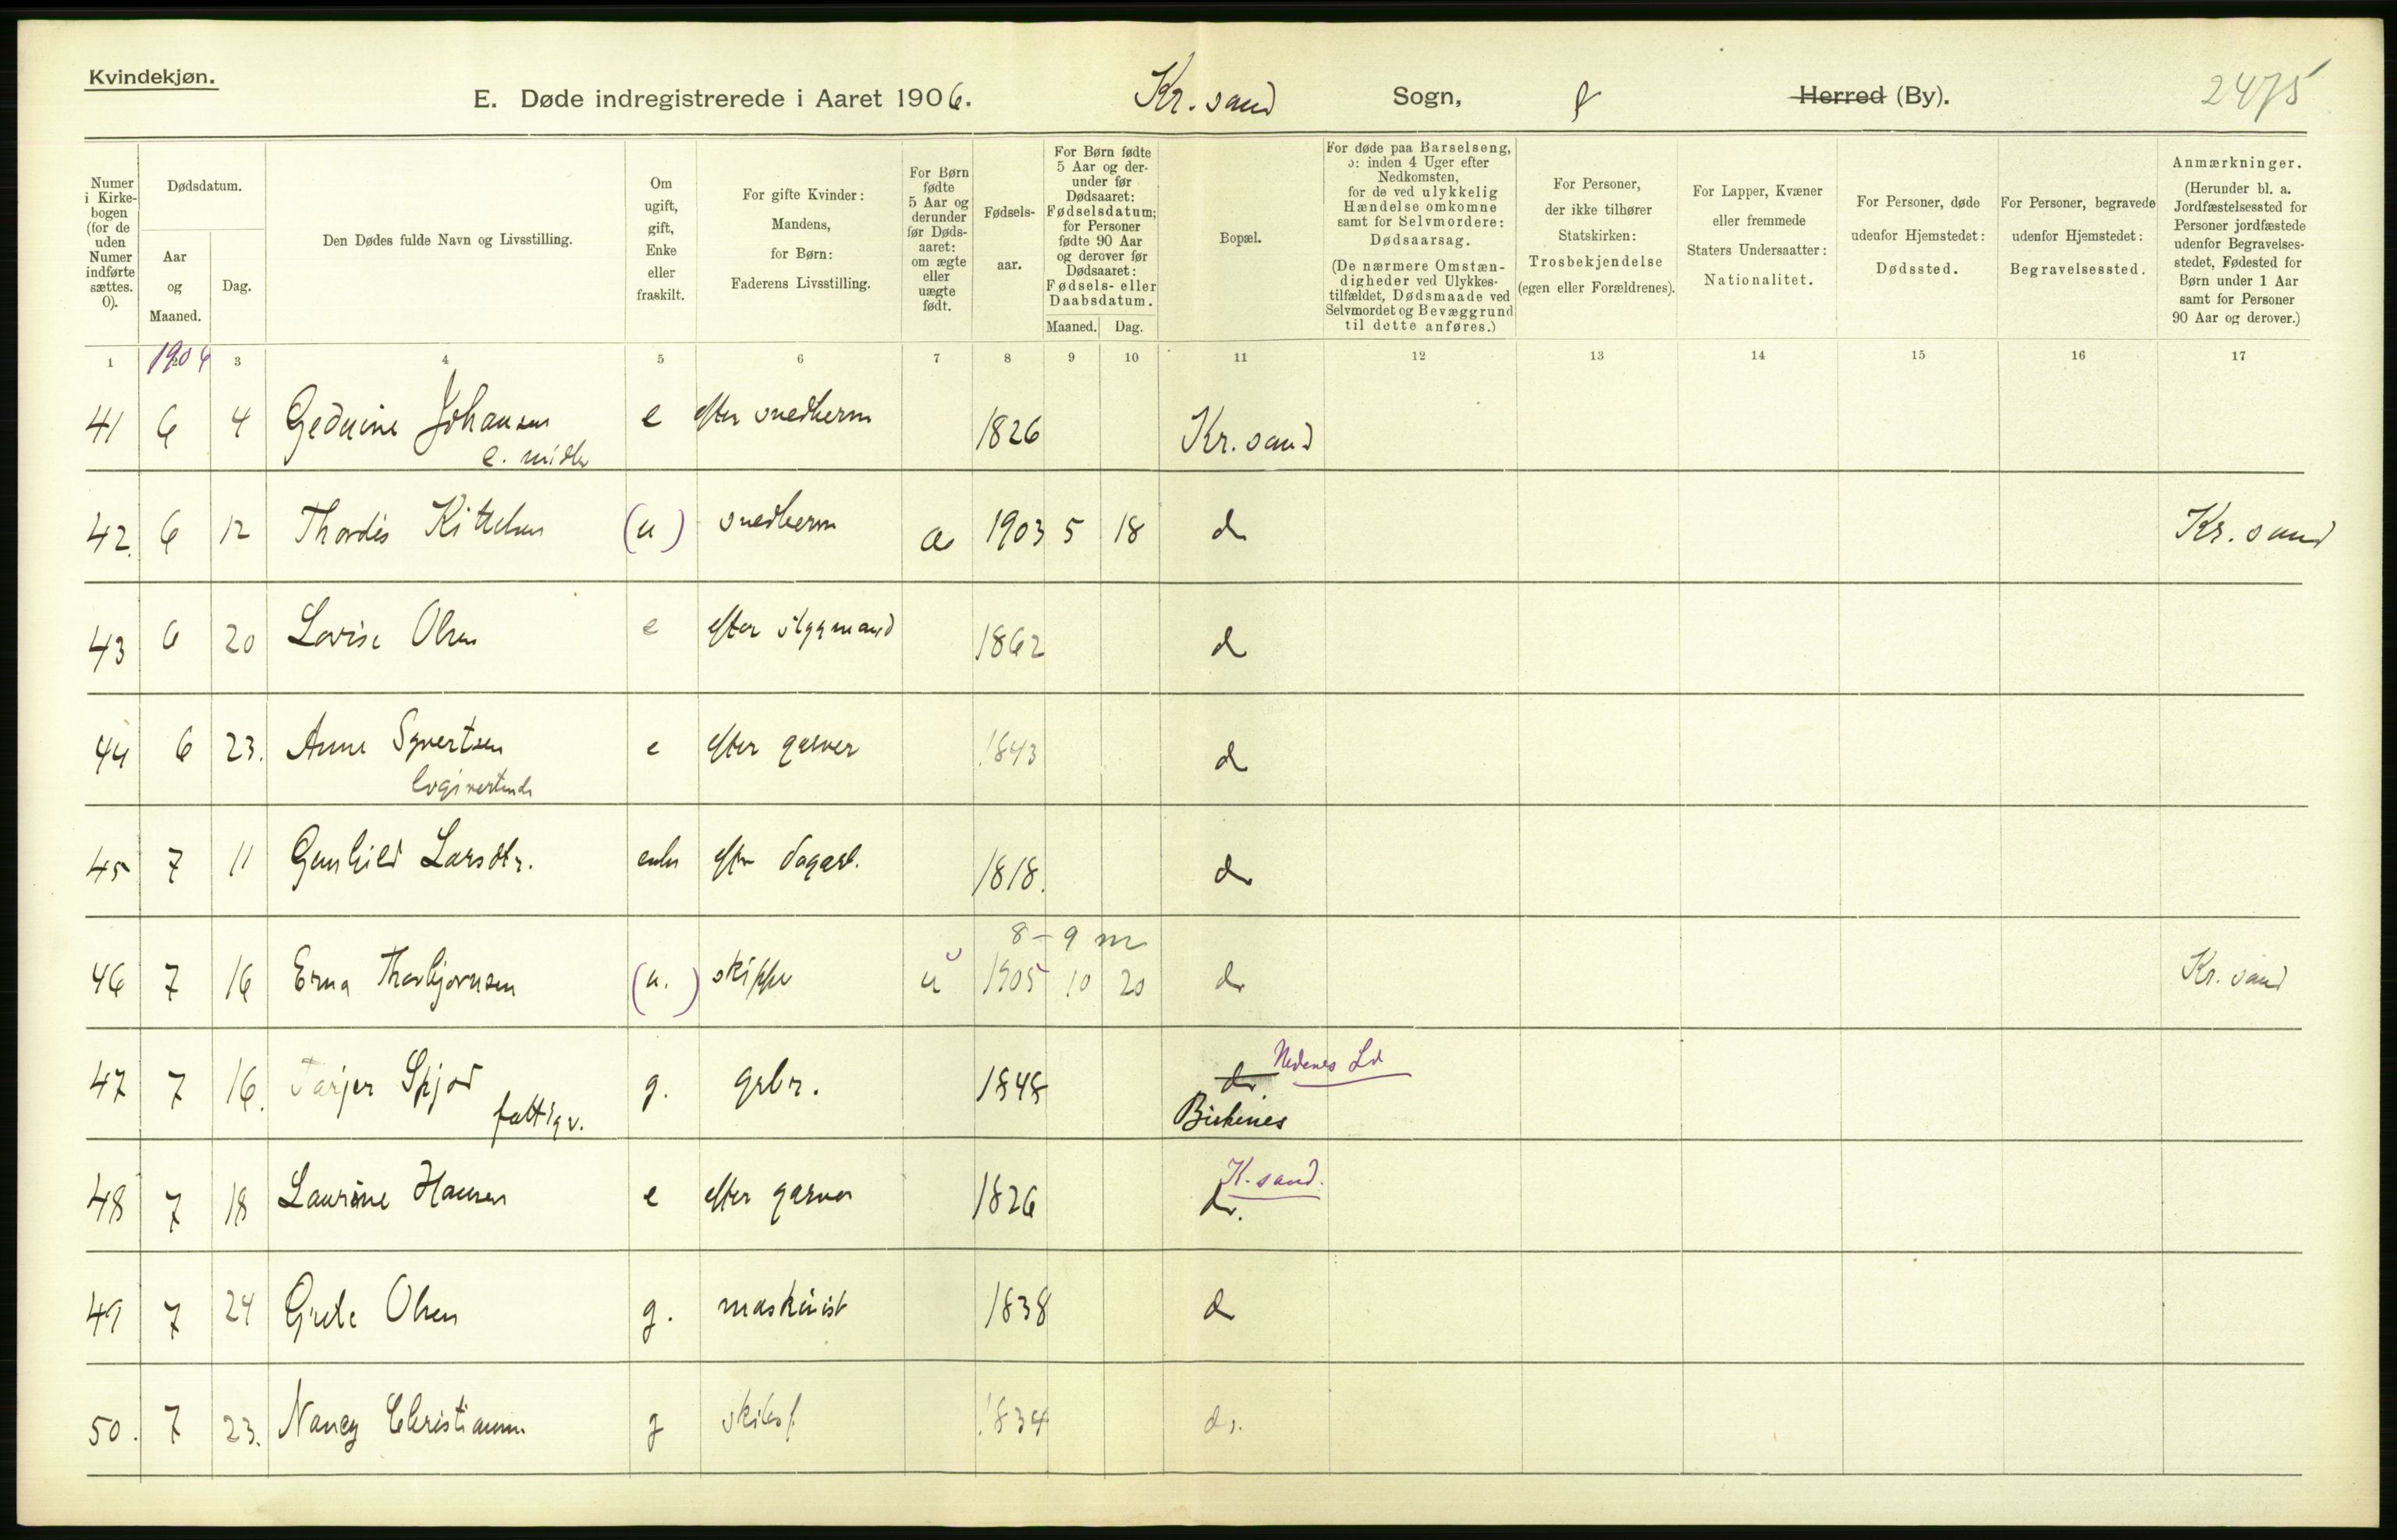 Kvindekjøn.
E. Døde indregistrerede i Aaret 1906. Kr. sand Sogn, Herred (By). 2475
Numer i Kirkebogen (for de uden Numer indførte sættes. 0).
Dødsdatum.
Aar og Maaned.
Dag.
Den Dødes fulde Navn og Livsstilling.
Om ugift, gift, Enke eller fraskilt.
For gifte Kvinder: Mandens, for Børn: Faderens Livsstilling.
For Børn fødte 5 Aar og derunder før Dødsaaret: om ægte eller uægte født.
Fødselsaar.
For Børn fødte 5 Aar og derunder før Dødsaaret: Fødselsdatum; for Personer fødte 90 Aar og derover før Dødsaaret: Fødsels- eller Daabsdatum.
Maaned. Dag.
Bopæl.
For døde paa Barselseng, ɔ: inden 4 Uger efter Nedkomsten, for de ved ulykkelig Hændelse omkomne samt for Selvmordere: Dødsaarsag. (De nærmere Omstændigheder ved Ulykkestilfældet, Dødsmaade ved Selvmordet og Bevæggrund til dette anføres.)
For Personer, der ikke tilhører Statskirken: Trosbekjendelse (egen eller Forældrenes).
For Lapper, Kvæner eller fremmede Staters Undersaatter: Nationalitet.
For Personer, døde udenfor Hjemstedet: Dødssted.
For Personer, begravede udenfor Hjemstedet: Begravelsessted.
Anmærkninger. (Herunder bl. a. Jordfæstelsessted for Personer jordfæstede udenfor Begravelsesstedet, Fødested for Børn under 1 Aar samt for Personer 90 Aar og derover.)
1 1906 3 4 5 6 7 8 9 10 11 12 13 14 15 16 17
41 6 4 Johansen e efter snedkerm 1826 Kr. sand
e. midler
42. 6 12 Thordis Kittelsen (u) snedkerm 1903 5 18 d Kr. sand
43 6 20 Lovise Olsen e efter 1862 d
44 6 23. Anne Syvertsen e efter garver 1843 d
logivertinde
45 7 11 Gunhild Larsdtr. enke efter dagarb. 1818. do
8-9 m
46 7 16 Erna Thorbjørnsen (u.) skipper u 1905 10 20 do Kr. sand
47 7 16. Tarjer g. grbr. 1848 do Nedenes Ld
fattigv. Birkenes
K. sand.
48 7 18 Laurine Hansen e efter garver 1826 do.
49 7 24 Grete Olsen g. maskinist 1838 d
50. 7 23. Nancy Christiansen g 1834 do.